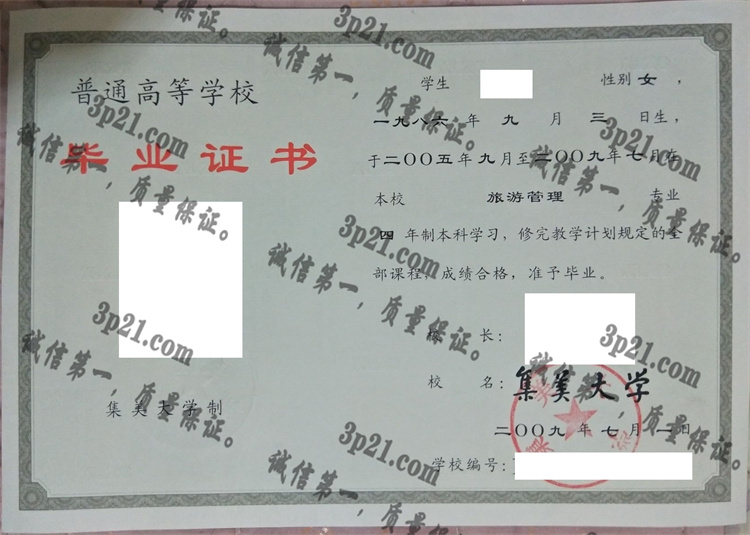 普通高等学校
毕业证书
集美大学制
学生 性别 女 ，
一九八六 年 九 月 三 日生，
于二〇〇五年九月至二〇〇九年七月在
本校 旅游管理 专业
四 年制本科学习，修完教学计划规定的全
部课程，成绩合格，准予毕业。
校 长：
校 名：集美大学
二〇〇九年七月一日
学校编号：
3p21.com
诚信第一，质量保证。
3p21.com
诚信第一，质量保证。
3p21.com
诚信第一，质量保证。
3p21.com
诚信第一，质量保证。
3p21.com
诚信第一，质量保证。
3p21.com
诚信第一，质量保证。
3p21.com
诚信第一，质量保证。
3p21.com
诚信第一，质量保证。